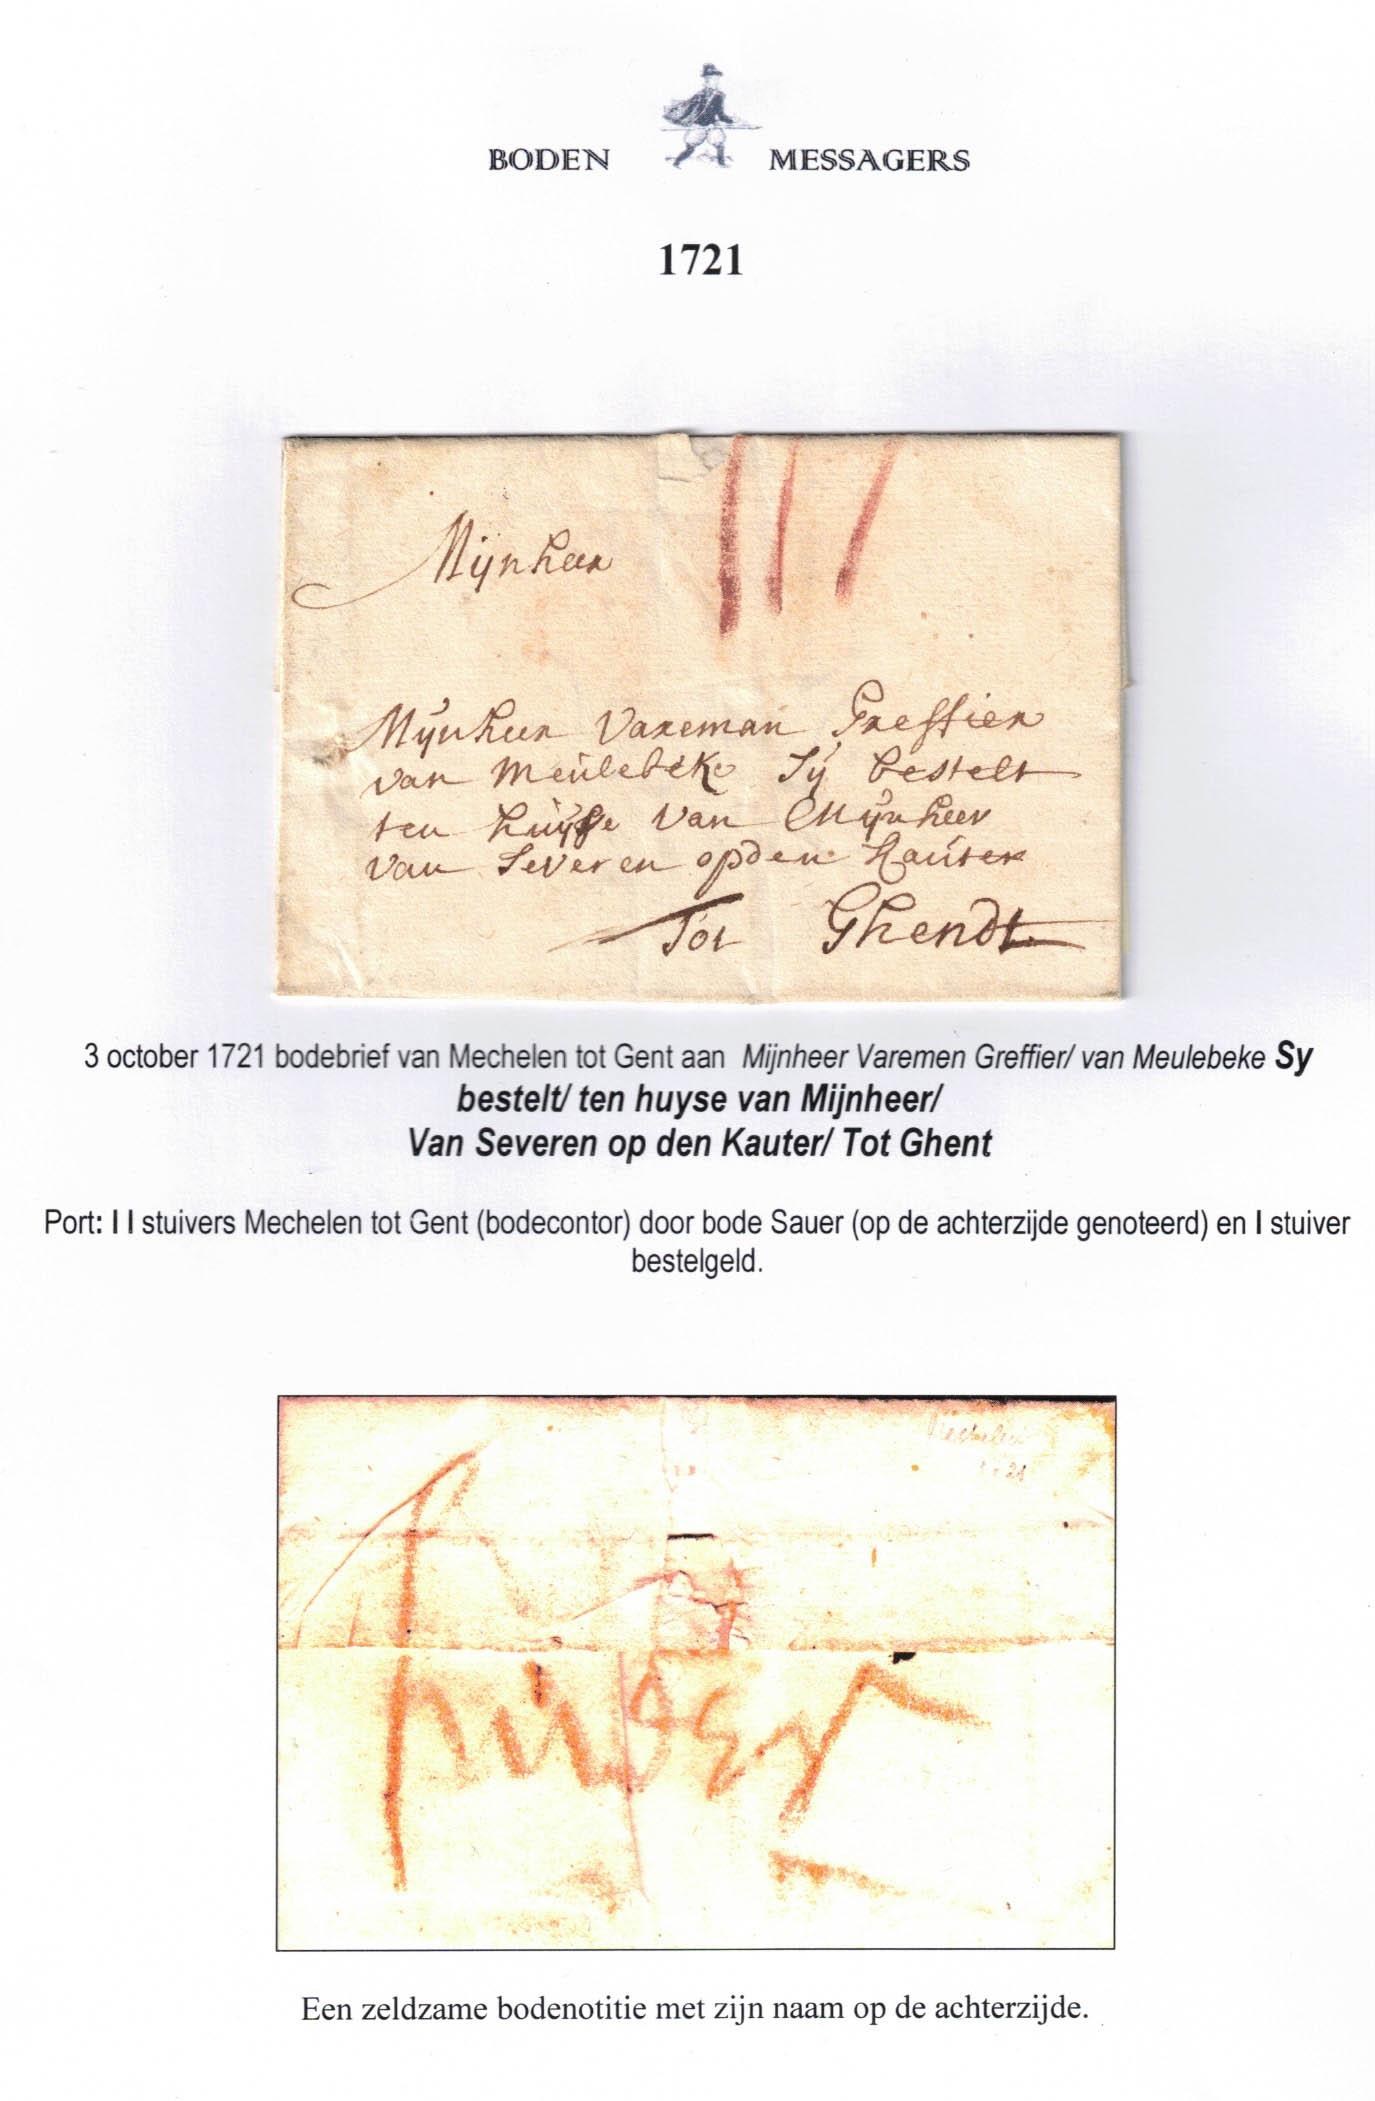 BODEN MESSAGERS
1721
Mijnheer
Mijnheer Vareman Greffier
van Meulebeke Sy bestelt
ten huyse van Mijnheer
van Severen op den Kauter
Tot Ghendt
3 october 1721 bodebrief van Mechelen tot Gent aan Mijnheer Varemen Greffier/ van Meulebeke Sy
bestelt/ ten huyse van Mijnheer/
Van Severen op den Kauter/ Tot Ghent
Port: I I stuivers Mechelen tot Gent (bodecontor) door bode Sauer (op de achterzijde genoteerd) en I stuiver
bestelgeld.
Mechelen
Een zeldzame bodenotitie met zijn naam op de achterzijde.